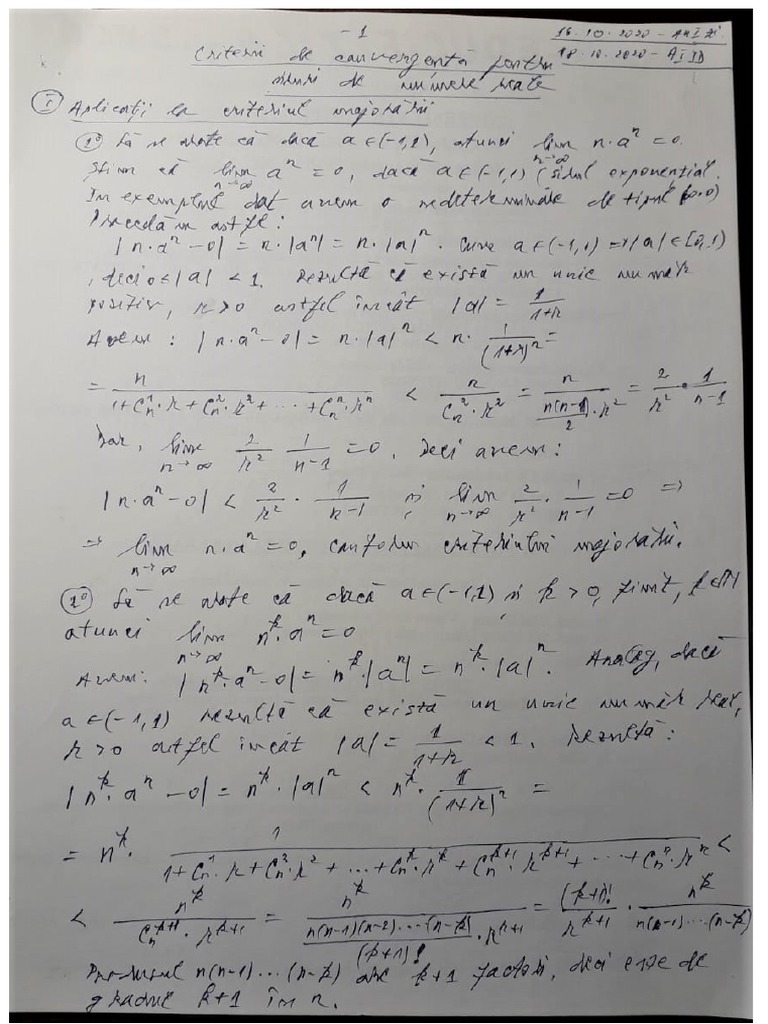 - 1
16.10.2020 - AM I
Criterii de convergență pentru 18.10.2020 - A I ID
șiruri de numere reale
I Aplicații la criteriul majorării
1° Să se arate că dacă a ∈ (-1,1), atunci lim_{n→∞} n·a^n = 0.
Știm că lim_{n→∞} a^n = 0, dacă a ∈ (-1,1) (șirul exponențial.
În exemplul dat avem o nedeterminare de tipul (∞·0)
Procedăm astfel:
|n·a^n - 0| = n·|a^n| = n·|a|^n. Cum a ∈ (-1,1) ⇒ |a| ∈ [0,1)
, deci 0 ≤ |a| < 1. Rezultă că există un unic număr
pozitiv, r > 0 astfel încât |a| = 1/(1+r)
Avem: |n·a^n - 0| = n·|a|^n < n · 1/(1+r)^n =
= n/(1 + C_n^1·r + C_n^2·r^2 + ... + C_n^n·r^n) < n/(C_n^2·r^2) = n/((n(n-1)/2)·r^2) = 2/r^2 · 1/(n-1)
Dar, lim_{n→∞} 2/r^2 · 1/(n-1) = 0. Deci avem:
|n·a^n - 0| < 2/r^2 · 1/(n-1) și lim_{n→∞} 2/r^2 · 1/(n-1) = 0 ⇒
⇒ lim_{n→∞} n·a^n = 0, conform criteriului majorării.
2° Să se arate că dacă a ∈ (-1,1) și k > 0, fixat, k ∈ ℕ
atunci lim_{n→∞} n^k·a^n = 0
Avem: |n^k·a^n - 0| = n^k·|a^n| = n^k·|a|^n. Analog, dacă
a ∈ (-1,1) rezultă că există un unic număr real,
r > 0 astfel încât |a| = 1/(1+r) < 1. Rezultă:
|n^k·a^n - 0| = n^k·|a|^n < n^k · 1/(1+r)^n =
= n^k · 1/(1 + C_n^1·r + C_n^2·r^2 + ... + C_n^k·r^k + C_n^{k+1}·r^{k+1} + ... + C_n^n·r^n) <
< n^k/(C_n^{k+1}·r^{k+1}) = n^k/((n(n-1)(n-2)...(n-k)/(k+1)!)·r^{k+1}) = (k+1)!/r^{k+1} · n^k/(n(n-1)...(n-k))
Produsul n(n-1)...(n-k) are k+1 factori, deci este de
gradul k+1 în n.